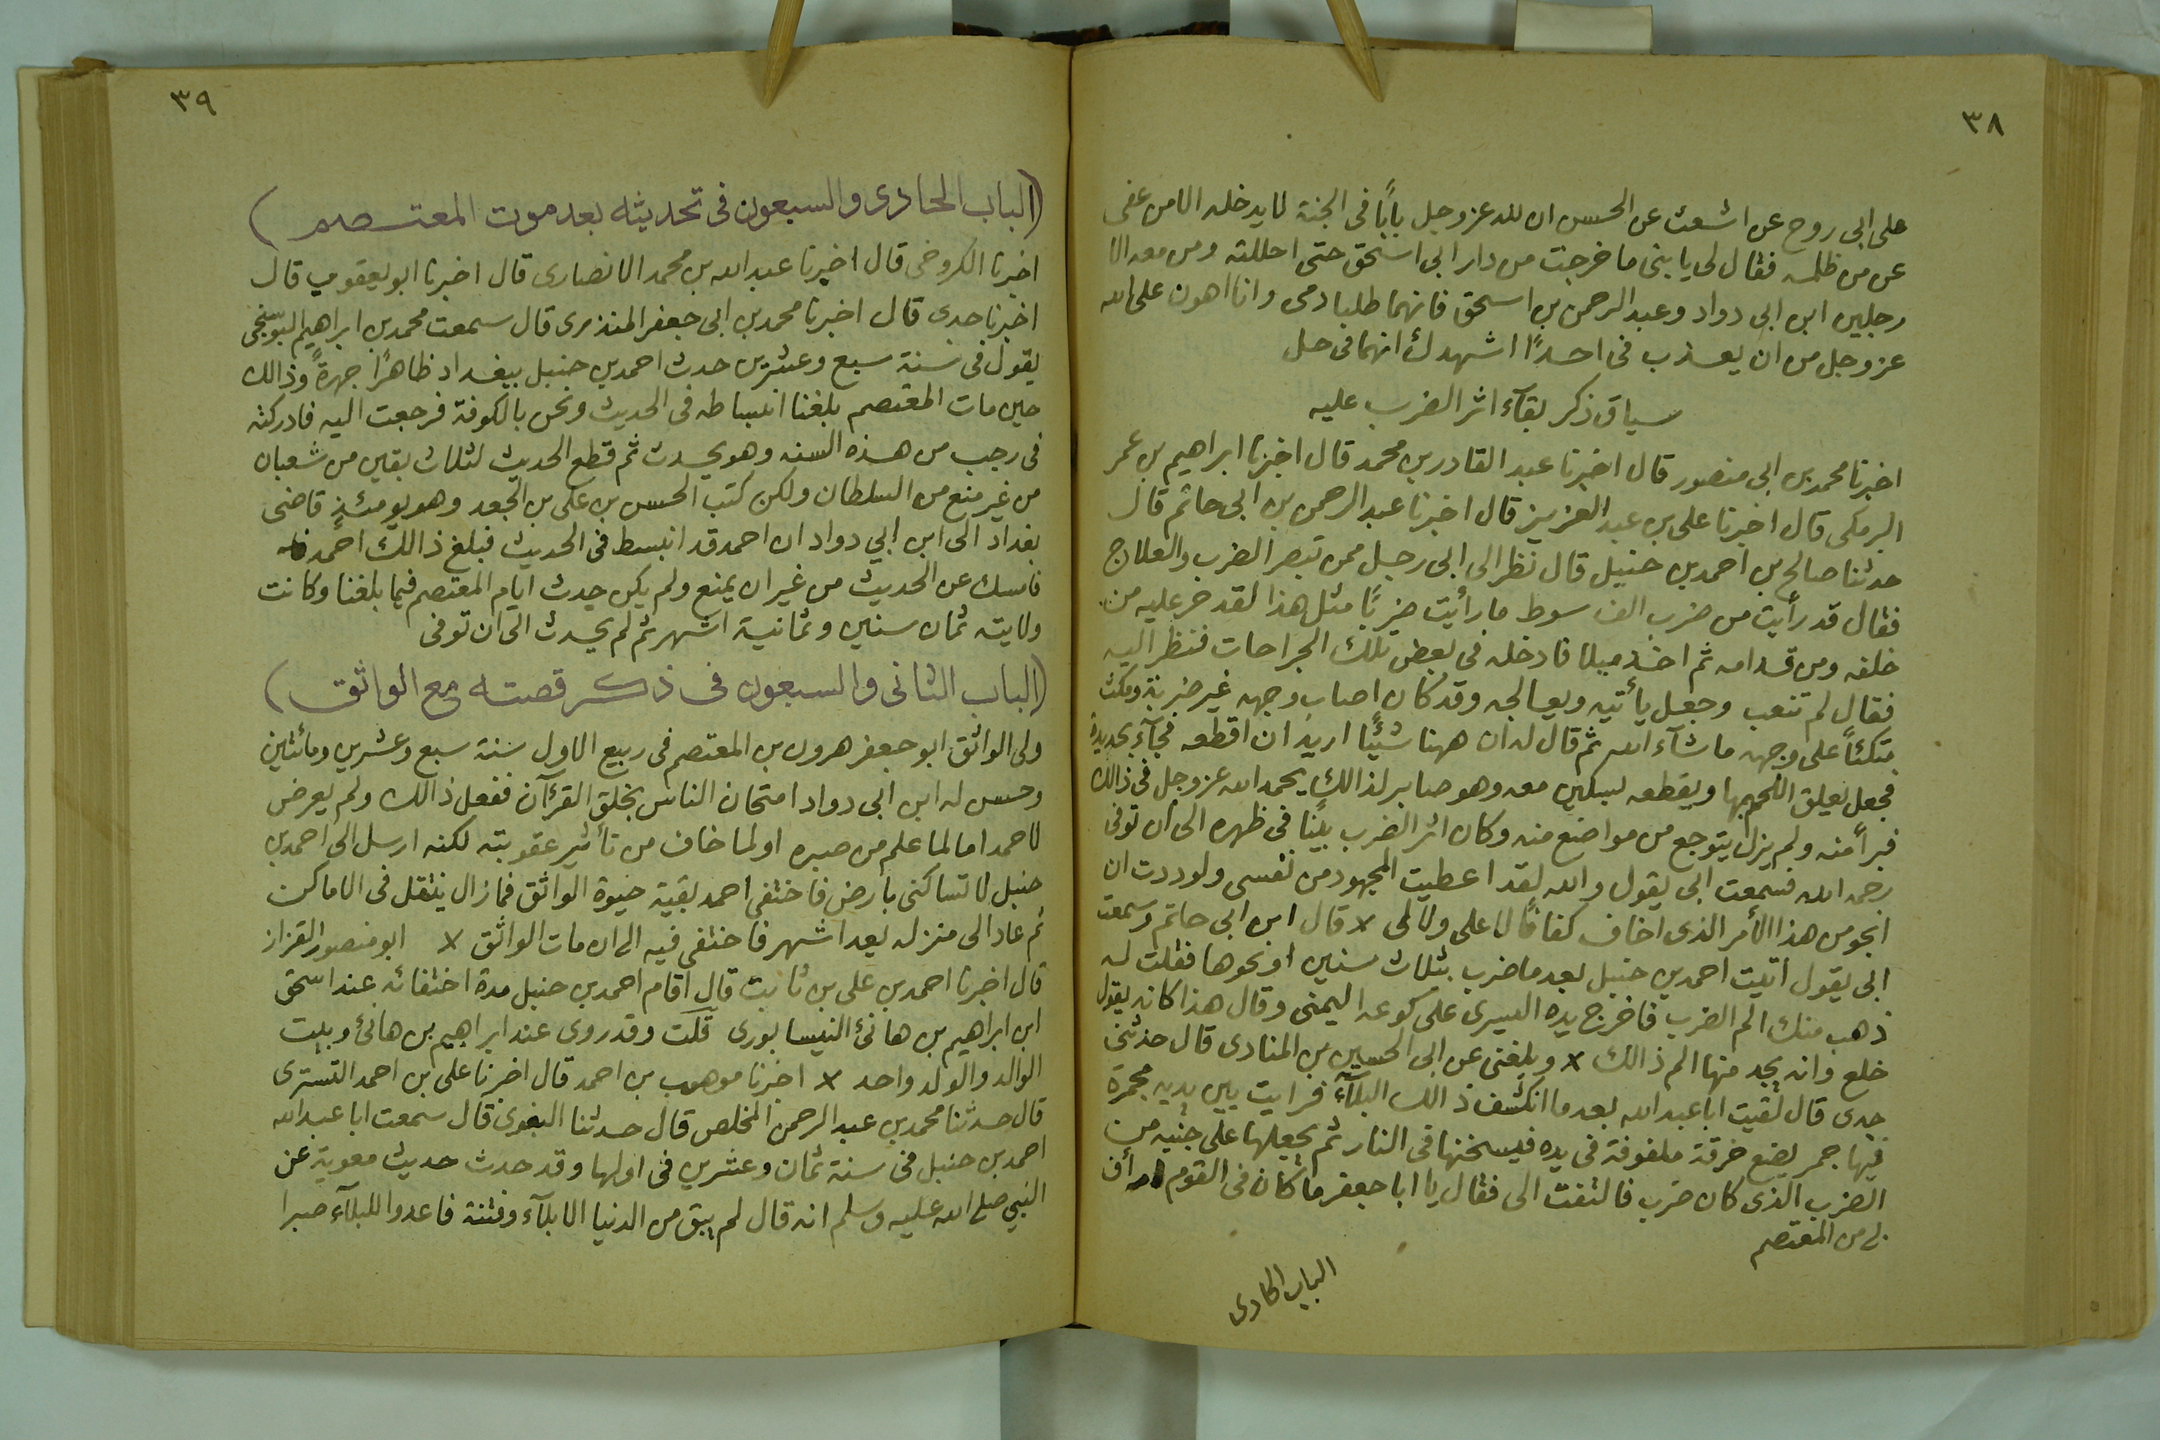 ٣٨
على ابى روح عن اشعث عن الحسن ان لله عز وجل بابًا فى الجنة لا يدخله الا من عفى
عن من ظلمه فقال لى يا بنى ما خرجت من دار ابى اسحق حتى احللته ومن معه الا
رجلين ابن ابى دواد وعبد الرحمن بن اسحق فانهما طلبا دمى وانا اهون على الله
عز وجل من ان يعذب فى احدًا اشهدك انهما فى حل
سياق ذكر بقآء اثر الضرب عليه
اخبرنا محمد بن ابى منصور قال اخبرنا عبد القادر بن محمد قال اخبرنا ابراهيم بن عمر
البرمكى قال اخبرنا على بن عبد العزيز قال اخبرنا عبد الرحمن بن ابى حاتم قال
حدثنا صالح بن احمد بن حنبل قال نظر الى ابى رجل ممن تبصر الضرب والعلاج
فقال قد رأيت من ضرب الف سوط ما رأيت ضربًا مثل هذا لقد جر عليه من
خلفه ومن قدامه ثم اخذ ميلا فادخله فى بعض تلك الجراحات فنظر اليه
فقال لم تنعب وجعل يأتيه ويعالجه وقد كان اصاب وجهه غير ضربة ومكث
متكئًا على وجهه ما شآء الله ثم قال له ان ههنا شيئًا اريد ان اقطعه فجآء بحديدة
فجعل يعلق اللحم بها ويقطعه بسكين معه وهو صابر لذالك يحمد الله عز وجل فى ذالك
فبرأ منه ولم يزل يتوجع من مواضع منه وكان اثر الضرب بيّنًا فى ظهره الى ان توفى
رحمه الله فسمعت ابى يقول والله لقد اعطيت المجهود من نفسى ولوددت ان
انجو من هذا الأمر الذى اخاف كفافًا لا على ولا لى × قال ابن ابى حاتم وسمعت
ابى يقول اتيت احمد بن حنبل بعد ما ضرب بثلاث سنين او نحوها فقلت له
ذهب منك الم الضرب فاخرج يده اليسرى على كوعه اليمنى وقال هذا كانه يقول
خلع وانه يجد منها الم ذالك × وبلغنى عن ابى الحسين بن المنادى قال حدثنى
جدى قال لقيت ابا عبد الله بعد ما انكشف ذالك البلآء فرايت بين يديه مجمرة
فيها جمر يضع خرقة ملفوفة فى يده فيسخنها فى النار ثم يجعلها على جنبه من
الضرب الذى كان ضرب فالتفت الى فقال يا ابا جعفر ما كان فى القوم ارأف
بى من المعتصم
الباب الحادى
٣٩
(الباب الحادى والسبعون فى تحديثه بعد موت المعتصم)
اخبرنا الكروخى قال اخبرنا عبد الله بن محمد الانصارى قال اخبرنا ابو يعقوب قال
اخبرنا جدى قال اخبرنا محمد بن ابى جعفر المنذرى قال سمعت محمد بن ابراهيم البوسنجى
يقول فى سنة سبع وعشرين حدث احمد بن حنبل ببغداد ظاهرًا جهرةً وذالك
حين مات المعتصم بلغنا انبساطه فى الحديث ونحن بالكوفة فرجعت اليه فادركته
فى رجب من هذه السنه وهو يحدث ثم قطع الحديث لثلاث بقين من شعبان
من غير منع من السلطان ولكن كتب الحسن بن على بن الجعد وهو يومئذٍ قاضى
بغداد الى ابن ابي دواد ان احمد قد انبسط فى الحديث فبلغ ذالك احمد
فامسك عن الحديث من غير ان يمنع ولم يكن حدث ايام المعتصم فيما بلغنا وكانت
ولايته ثمان سنين وثمانية اشهر ثم لم يحدث الى ان توفى
(الباب الثانى والسبعون فى ذكر قصته مع الواثق)
ولى الواثق ابو جعفر هرون بن المعتصم فى ربيع الاول سنة سبع وعشرين ومائتين
وحسن له ابن ابى دواد امتحان الناس بخلق القرءآن ففعل ذالك ولم يعرض
لاحمد اما لما علم من صبره او لما خاف من تأثير عقوبته لكنه ارسل الى احمد بن
حنبل لا تساكنى بارض فاختفى احمد بقية حيوة الواثق فما زال ينتقل فى الاماكن
ثم عاد الى منزله بعد اشهر فاختفى فيه الى ان مات الواثق × ابو منصور القزاز
قال اخبرنا احمد بن على بن ثابت قال اقام احمد بن حنبل مدة اختفائه عند اسحق
ابن ابراهيم بن هانئ النيسابورى قلت وقد روى عند ابراهيم بن هانئ وبيت
الوالد والولد واحد × اخبرنا موهوب بن احمد قال اخبرنا على بن احمد التسترى
قال حدثنا محمد بن عبد الرحمن المخلص قال حدثنا البغوى قال سمعت ابا عبد الله
احمد بن حنبل فى سنة ثمان وعشرين فى اولها وقد حدث حديث معوية عن
النبي صلى الله عليه وسلم انه قال لم يبق من الدنيا الا بلآء وفتنة فاعدوا للبلآء صبرا